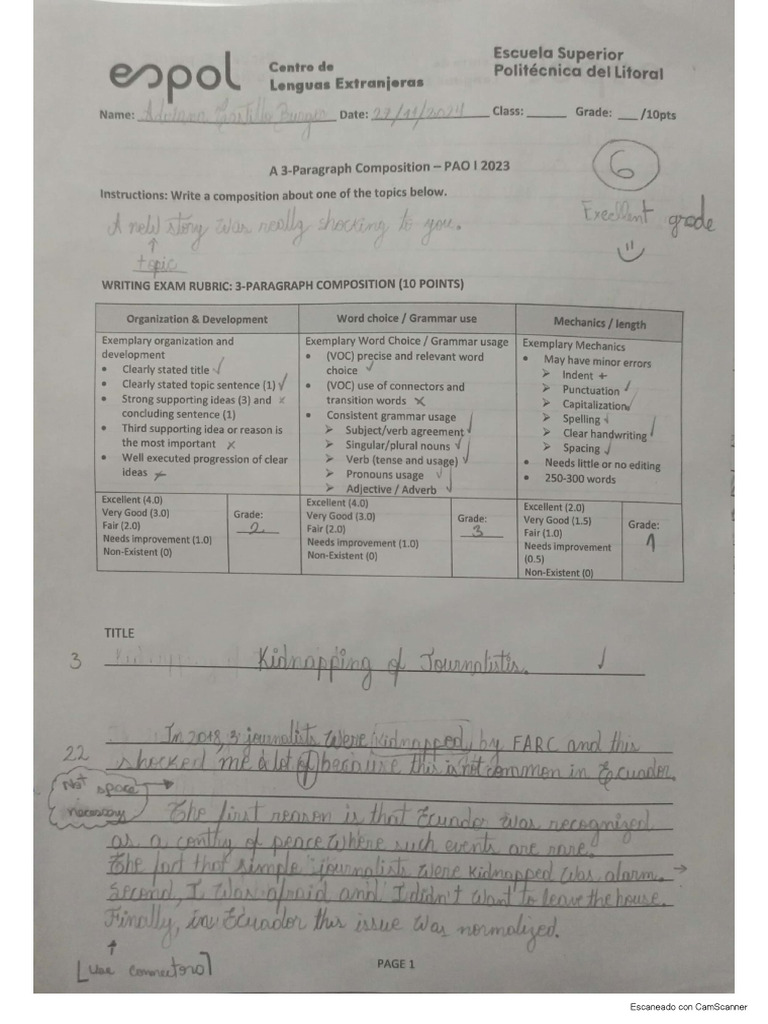 espol
Centro de
Lenguas Extranjeras
Escuela Superior
Politécnica del Litoral
Name: Date: 27/11/2024 Class: Grade: /10pts
A 3-Paragraph Composition – PAO I 2023
6
Instructions: Write a composition about one of the topics below.
Excellent grade
A new story was really shocking to you.
topic
WRITING EXAM RUBRIC: 3-PARAGRAPH COMPOSITION (10 POINTS)
Organization & Development
Exemplary organization and
development
• Clearly stated title ✓
• Clearly stated topic sentence (1) ✓
• Strong supporting ideas (3) and x
concluding sentence (1)
• Third supporting idea or reason is
the most important x
• Well executed progression of clear
ideas x
Excellent (4.0)
Very Good (3.0)
Fair (2.0)
Needs improvement (1.0)
Non-Existent (0)
Grade:
2
Word choice / Grammar use
Exemplary Word Choice / Grammar usage
• (VOC) precise and relevant word
choice ✓
• (VOC) use of connectors and
transition words x
• Consistent grammar usage
➢ Subject/verb agreement ✓
➢ Singular/plural nouns ✓
➢ Verb (tense and usage) ✓
➢ Pronouns usage ✓
➢ Adjective / Adverb ✓
Excellent (4.0)
Very Good (3.0)
Fair (2.0)
Needs improvement (1.0)
Non-Existent (0)
Grade:
3
Mechanics / length
Exemplary Mechanics
• May have minor errors
➢ Indent +
➢ Punctuation ✓
➢ Capitalization ✓
➢ Spelling ✓
➢ Clear handwriting ✓
➢ Spacing ✓
• Needs little or no editing
• 250-300 words
Excellent (2.0)
Very Good (1.5)
Fair (1.0)
Needs improvement
(0.5)
Non-Existent (0)
Grade:
1
TITLE
3 Kidnapping of Journalists. ✓
In 2018, 3 journalists were kidnapped by FARC and this
22 shocked me a lot of because this is not common in Ecuador.
Not space
necessary
The first reason is that Ecuador was recognized
as a contry of peace where such events are rare.
The fact that simple journalists were kidnapped was alarm.
Second, I was afraid and I didn't want to leave the house.
Finally, in Ecuador this issue was normalized.
[Use connectors]
PAGE 1
Escaneado con CamScanner